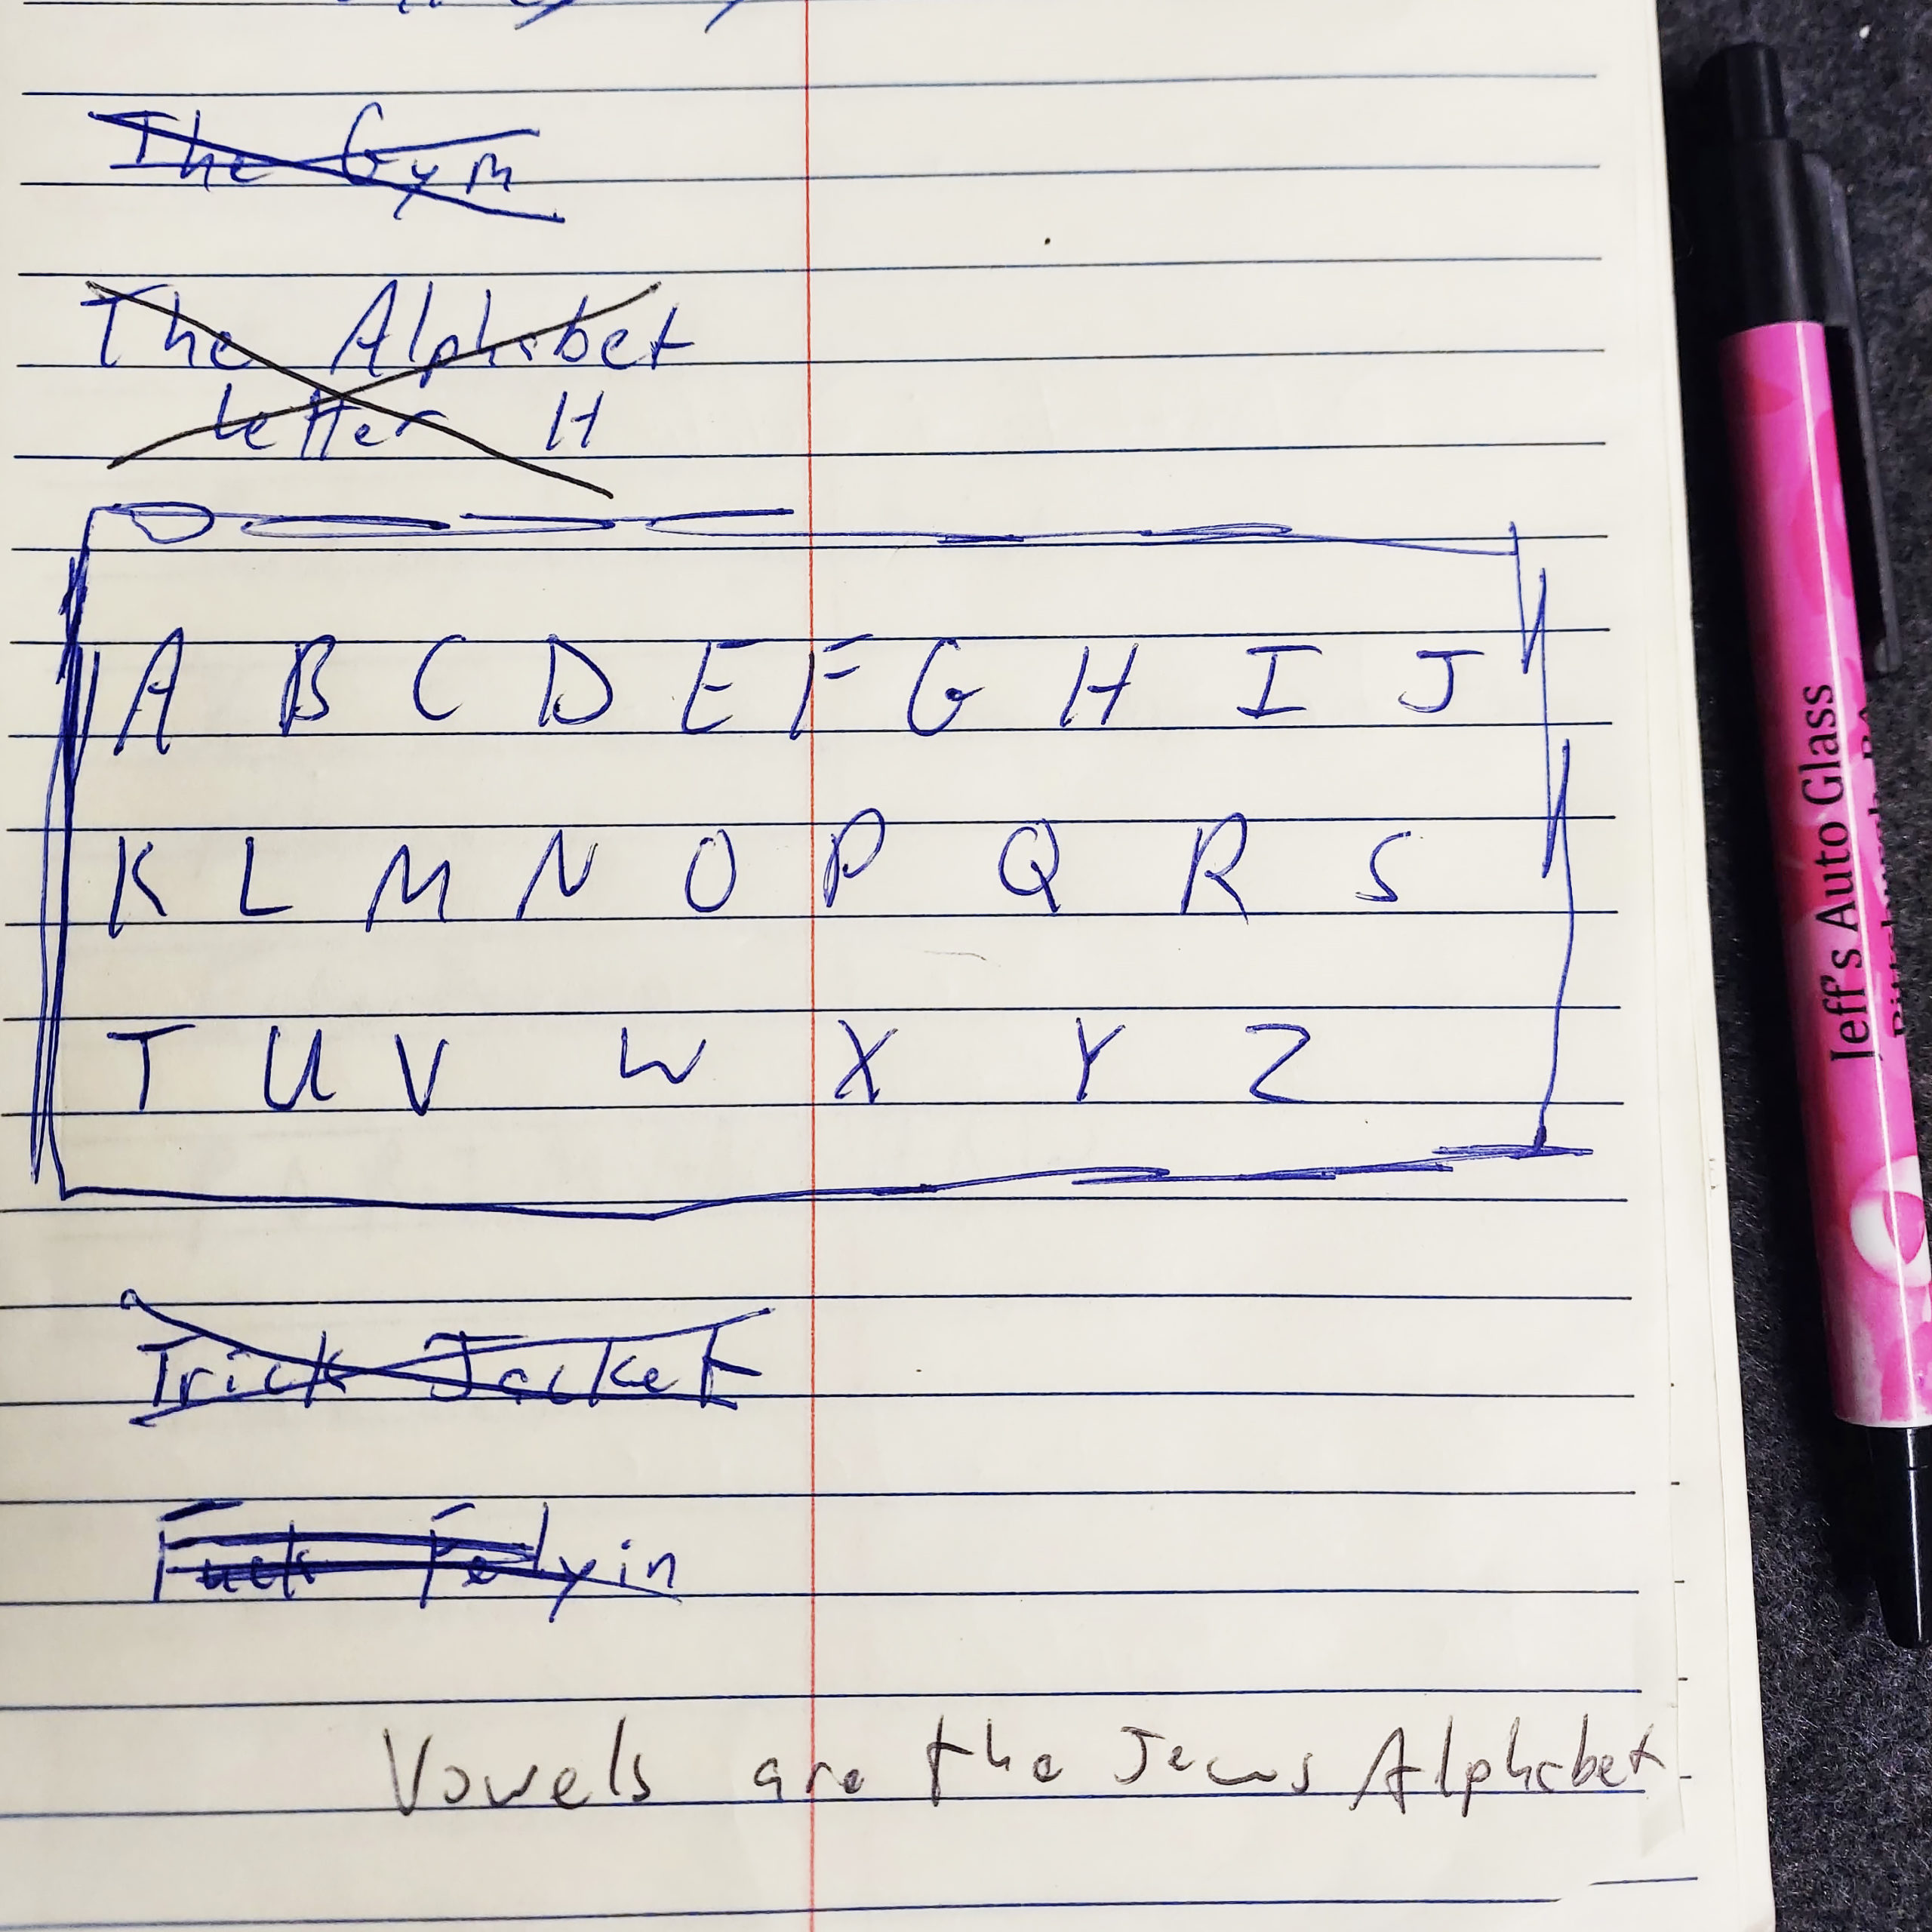 The Gym
The Alphabet
letter H
A B C D E F G H I J
K L M N O P Q R S
T U V W X Y Z
Trick Jacket
Fuck Felyin
Vowels are the Jews Alphabet
Jeff's Auto Glass